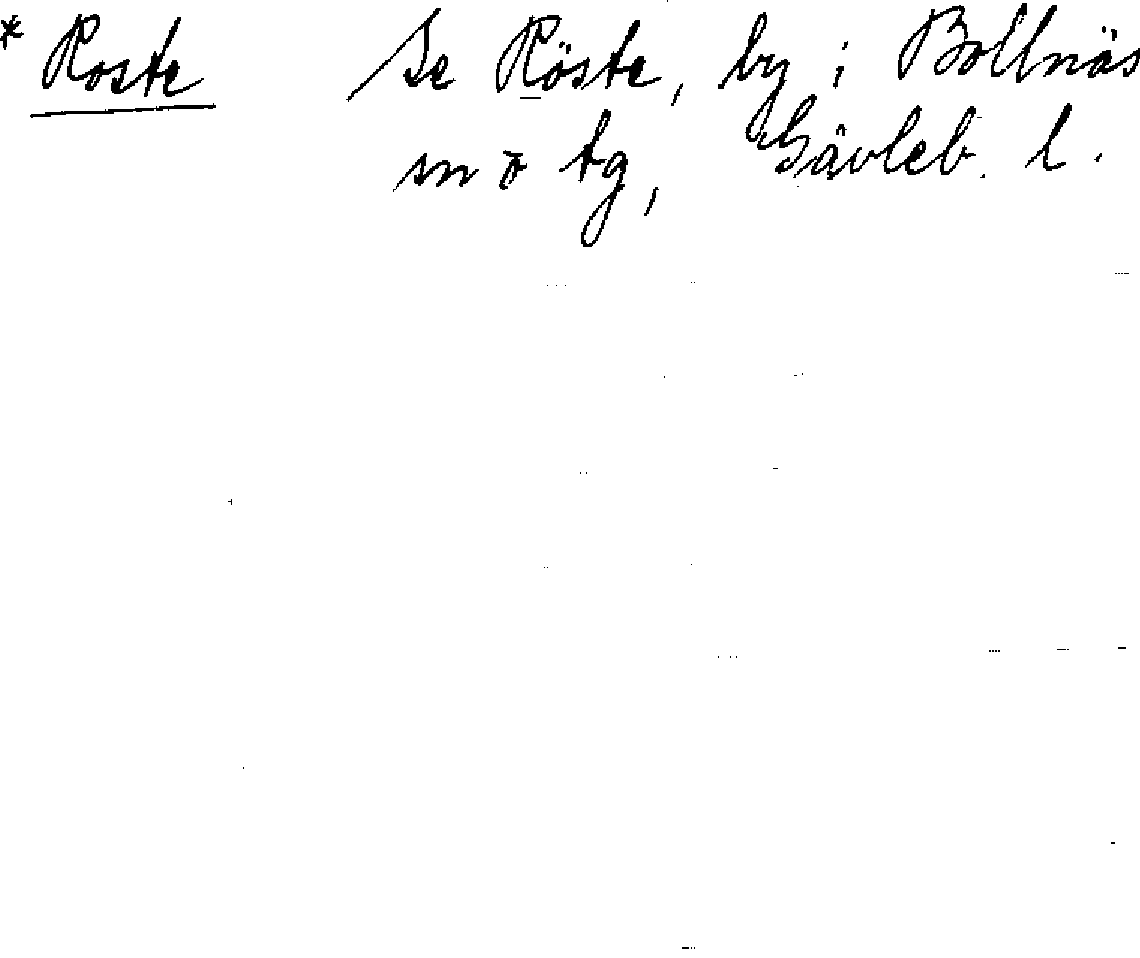 * Roste Se Röste, by i Bollnäs
sn o tg, Gävleb. l.